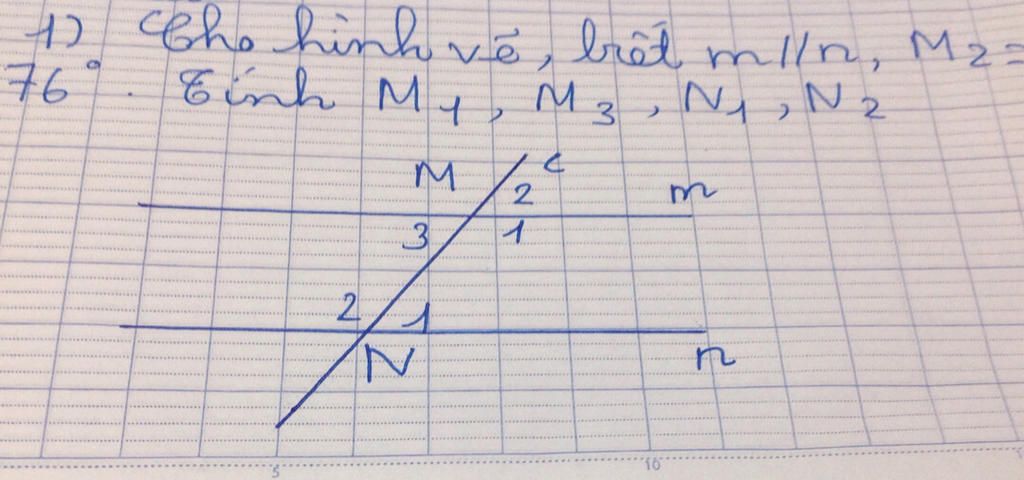 1) Cho hình vẽ, biết m//n, M2=
76°. Tính M1, M3, N1, N2
M c
2 m
3 1
2 1
N n
5 10